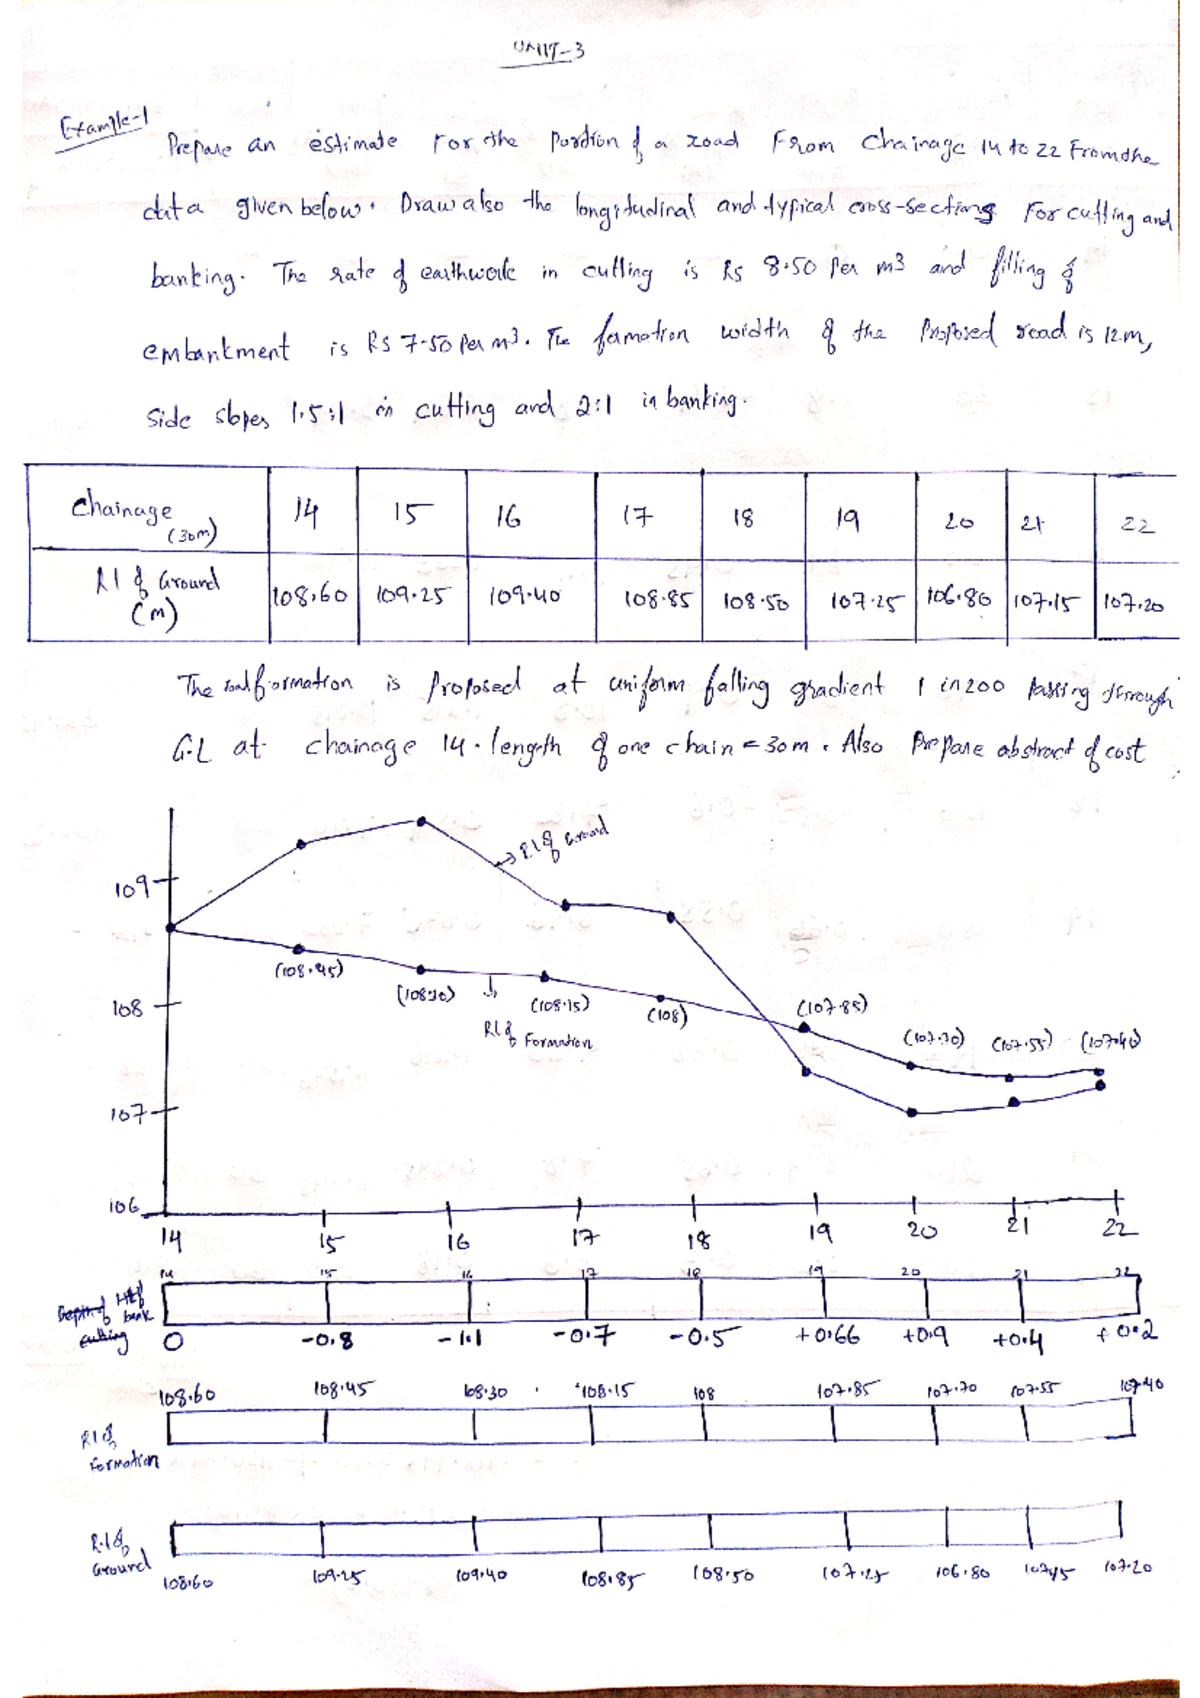 UNIT-3
Example-1
Prepare an estimate For the Portion of a road From Chainage 14 to 22 From the
data given below. Draw also the longitudinal and typical cross-sections For cutting and
banking. The rate of earthwork in cutting is Rs 8.50 Per m3 and filling of
embankment is Rs 7.50 Per m3. The formation width of the Proposed road is 12m,
Side slopes 1.5:1 in cutting and 2:1 in banking.
Chainage (30m) 14 15 16 17 18 19 20 21 22
Rl of Ground (m) 108.60 109.25 109.40 108.85 108.50 107.25 106.80 107.15 107.20
The road formation is Proposed at uniform falling gradient 1 in 200 Passing through
G.L at chainage 14. length of one chain = 30m. Also Prepare abstract of cost
→ Rl of Ground
109
(108.45)
108
(108.30)
(108.15)
(108)
(107.85)
(107.70)
(107.55)
(107.40)
Rl of Formation
107
106
14 15 16 17 18 19 20 21 22
14 15 16 17 18 19 20 21 22
bank
cutting
0 -0.8 -1.1 -0.7 -0.5 +0.66 +0.9 +0.4 +0.2
108.60 108.45 108.30 108.15 108 107.85 107.70 107.55 107.40
Rl of
Formation
R.l of
Ground
108.60 109.25 109.40 108.85 108.50 107.25 106.80 107.15 107.20